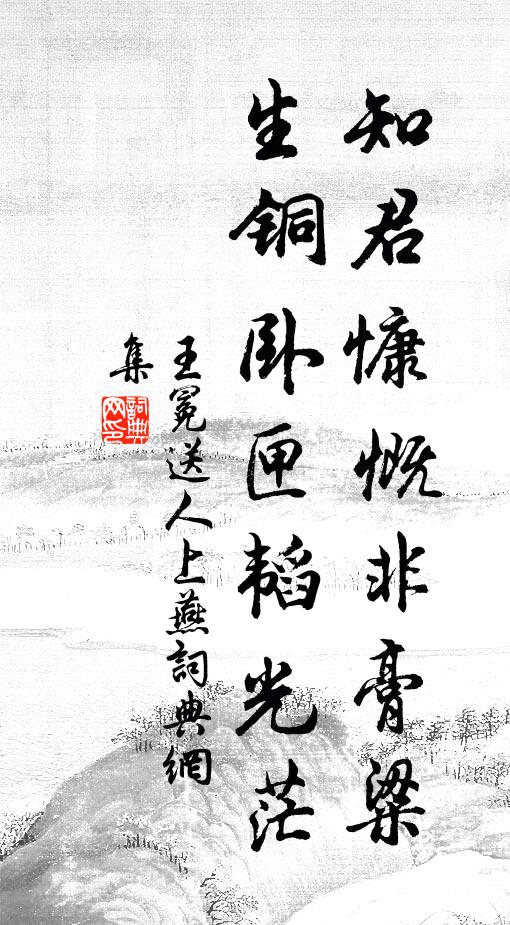 知君慷慨非膏粱
生铜卧匣韬光茫
王冕送人上燕詞典網
集
詞典網印